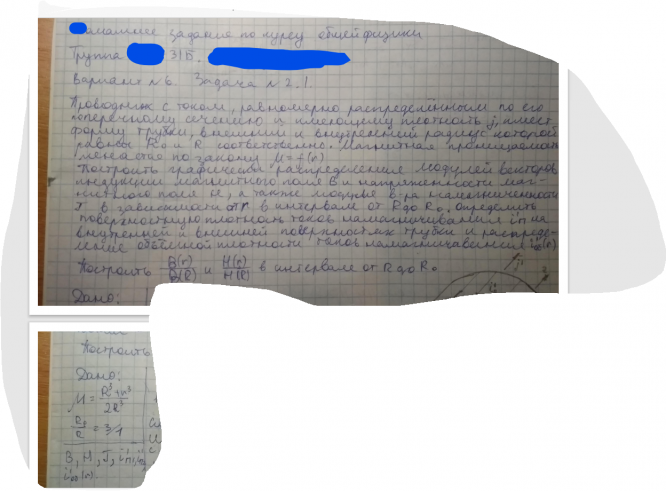 Домашнее задание по курсу общей физики
Группа 31Б.
Вариант №6. Задача №2.1.
Проводник с током, равномерно распределённым по его
поперечному сечению и имеющему плотность j, имеет
форму трубки, внешний и внутренний радиус которой
равны R₀ и R соответственно. Магнитная проницаемость
меняется по закону μ = f(r)
Построить графически распределения модулей векторов
индукции магнитного поля B и напряженности маг-
нитного поля H, а также модуля вектора намагниченности
J в зависимости от r в интервале от R до R₀. Определить
поверхностную плотность токов намагничивания i'п на
внутренней и внешней поверхностях трубки и распреде-
ление объёмной плотности токов намагничивания i'об(r)
Построить B(r)/B(R) и H(r)/H(R) в интервале от R до R₀
Дано:
Построить
Дано:
μ = (R³+r³)/2R³
R₀/R = 3/1
B, H, J,
i'об(r).